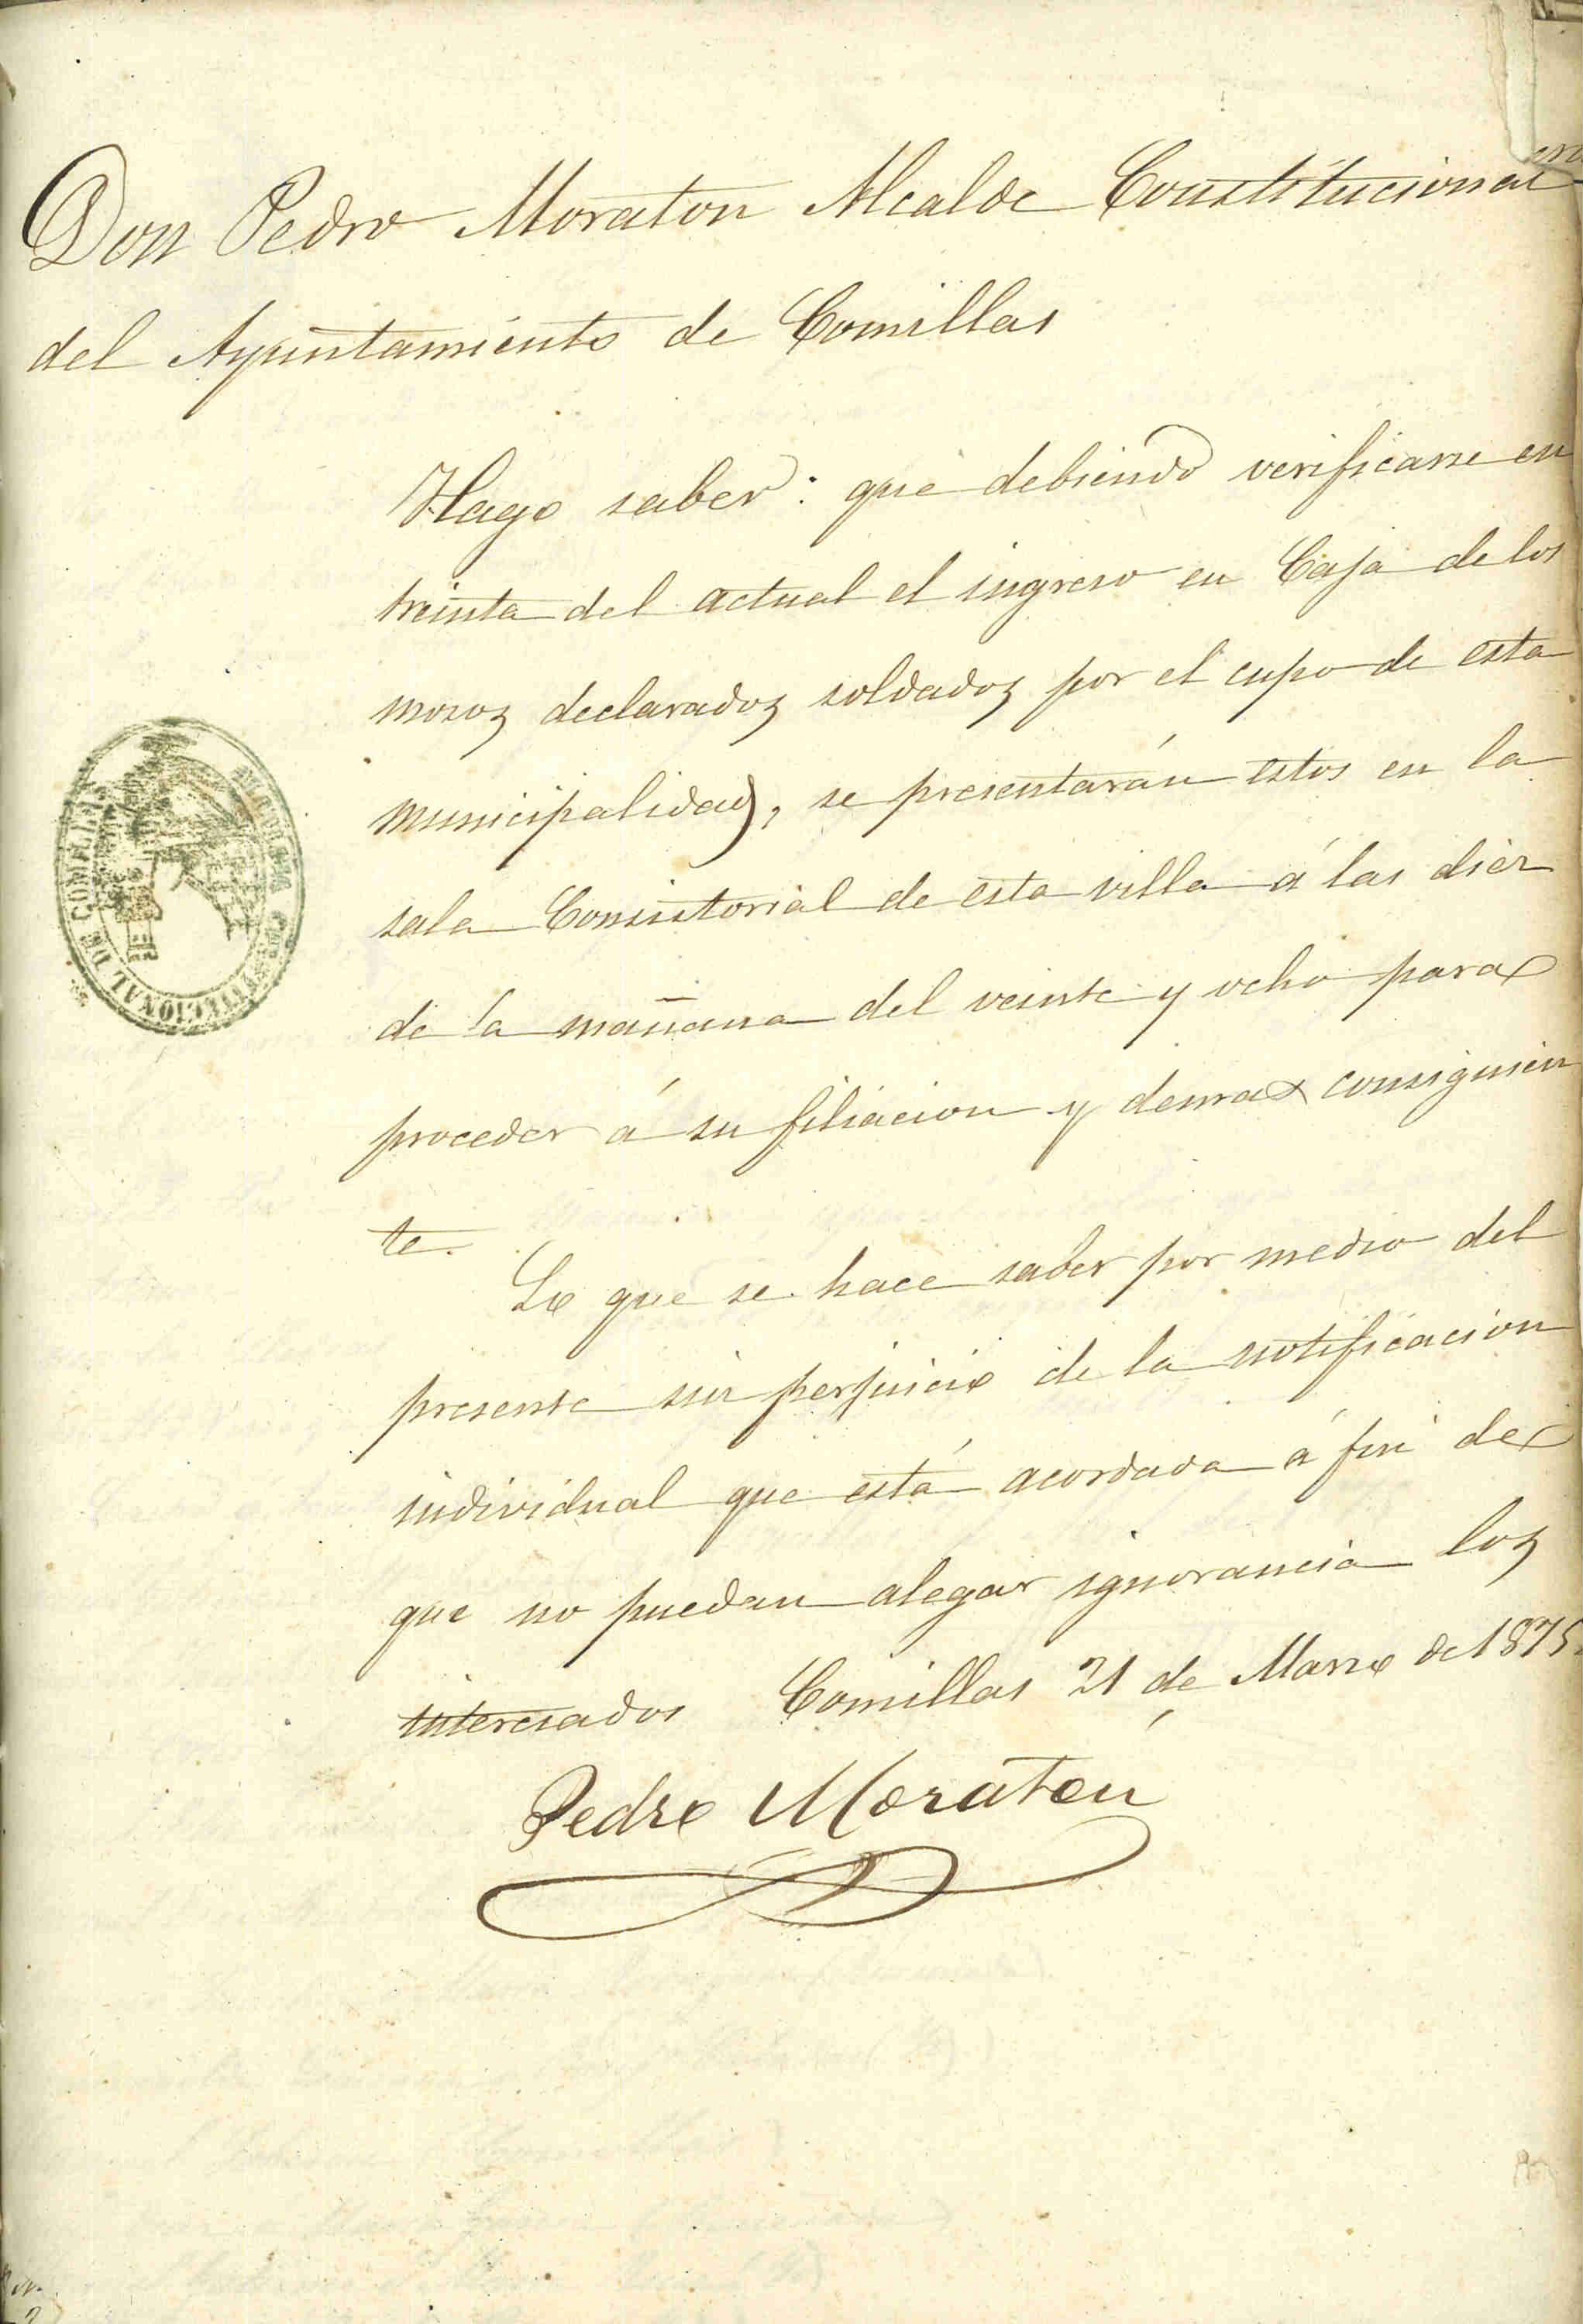 Don Pedro Moraton Alcalde Constitucional
del Ayuntamiento de Comillas
Hago saber: que debiendo verificarse en
treinta del actual el ingreso en Caja de los
mozos declarados soldados por el cupo de esta
municipalidad, se presentarán estos en la
sala Consistorial de esta villa á las diez
de la mañana del veinte y ocho para
proceder á su filiacion y demas consiguien
te.
Lo que se hace saber por medio del
presente sin perjuicio de la notificacion
individual que está acordada á fin de
que no puedan alegar ignorancia los
interesados Comillas 21 de Marzo de 1875.
Pedro Moratón
CONSTITUCIONAL DE COMILLAS